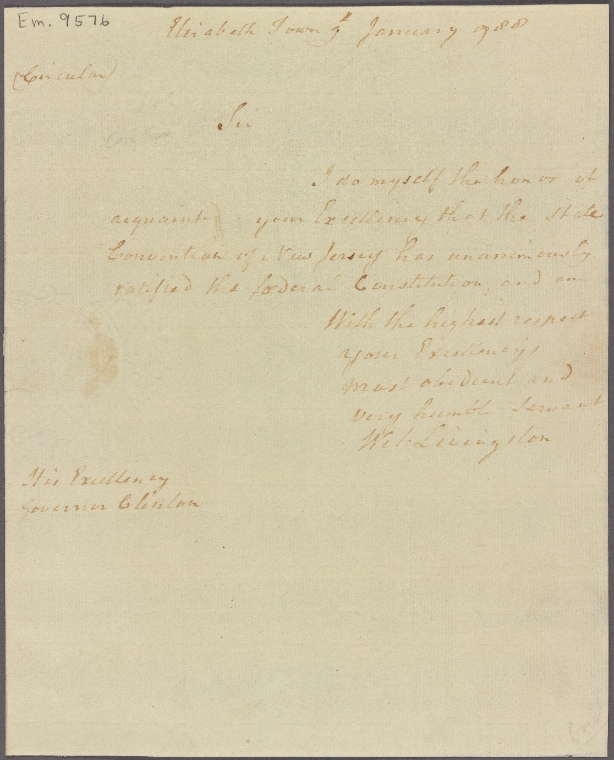 Em. 9576
Elizabeth Town 9th January 1788
(Circular)
Sir
I do myself the honor of
acquaint your Excellency that the State
Convention of New Jersey has unanimously
ratified the fœderal Constitution, and am
With the highest respect
your Excellency's
most obedient and
very humbl servant
Wil: Livingston
His Excellency
Governor Clinton